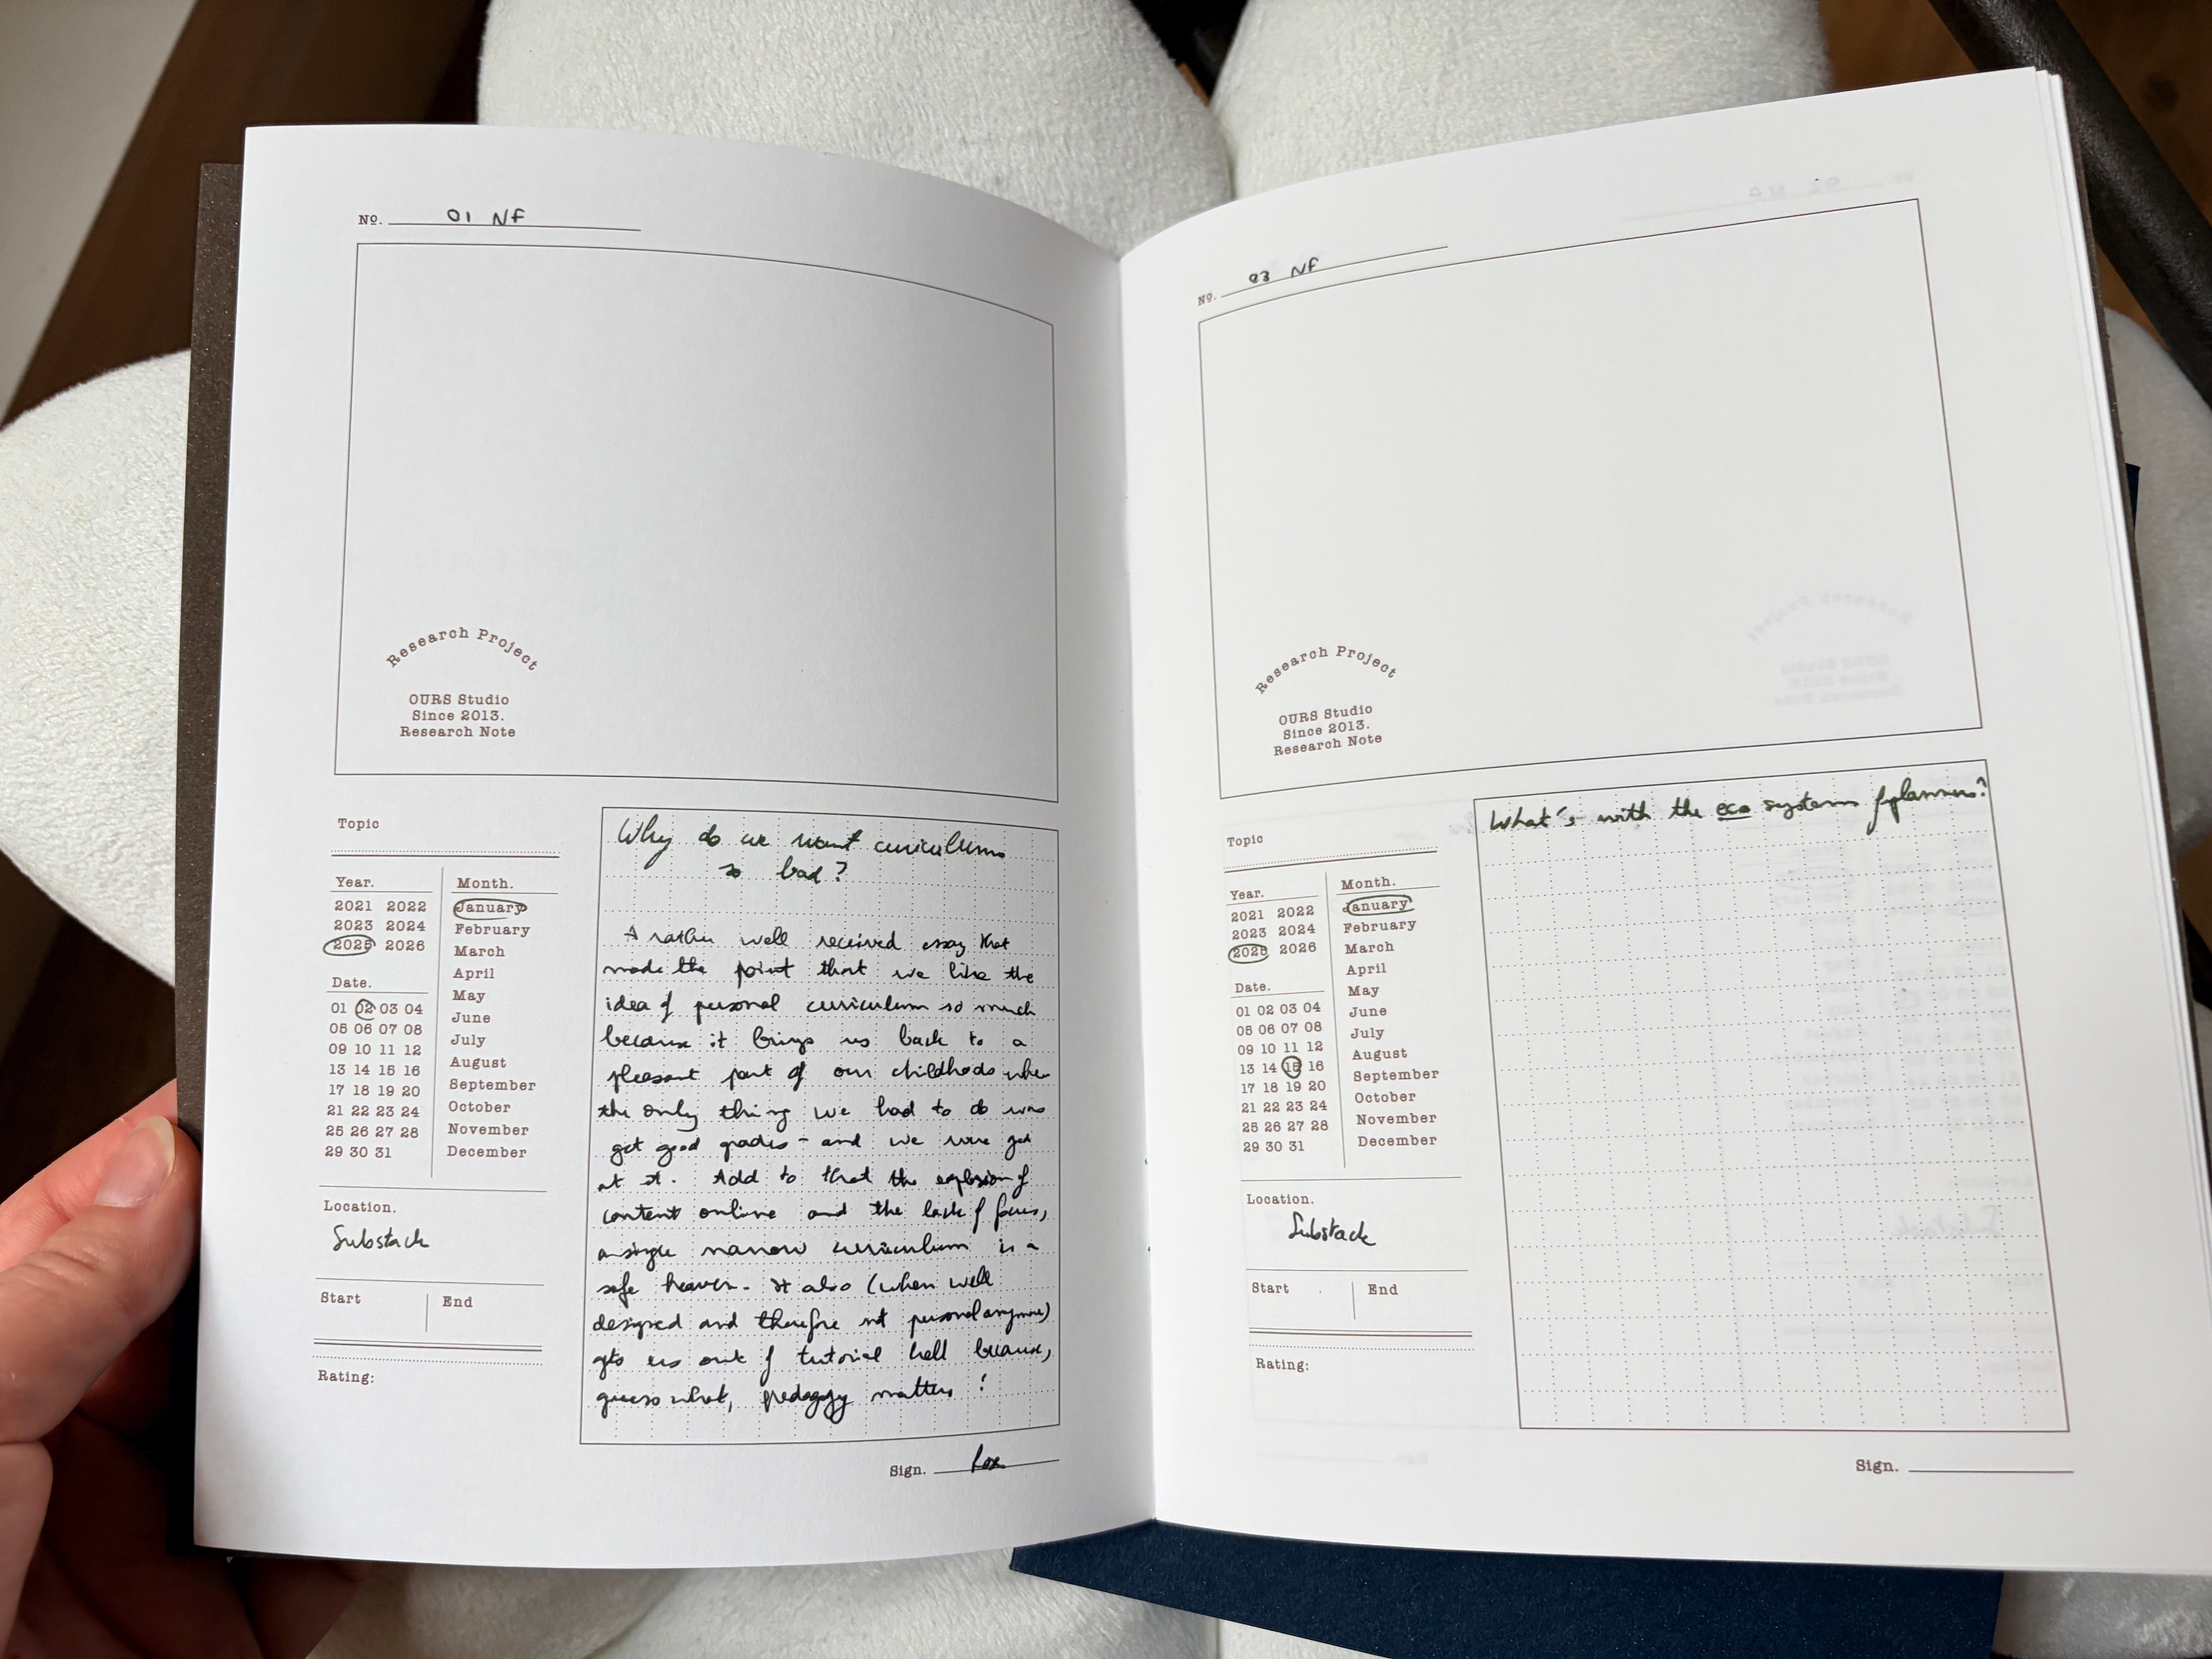 No. 01 NF
Research Project
OURS Studio
Since 2013.
Research Note
Topic
Year.
2021 2022
2023 2024
2025 2026
Month.
January
February
March
April
May
June
July
August
September
October
November
December
Date.
01 02 03 04
05 06 07 08
09 10 11 12
13 14 15 16
17 18 19 20
21 22 23 24
25 26 27 28
29 30 31
Location.
Substack
Start
End
Rating:
Why do we want curriculums
so bad?
A rather well received essay that
made the point that we like the
idea of personal curriculum so much
because it brings us back to a
pleasant part of our childhoods when
the only thing we had to do was
get good grades - and we were good
at it. Add to that the explosion of
content online and the lack of focus,
a single narrow curriculum is a
safe heaven. It also (when well
designed and therefore not personal anymore)
gets us out of tutorial hell because,
guess what, pedagogy matters!
Sign.
No. 03 NF
Research Project
OURS Studio
Since 2013.
Research Note
Topic
Year.
2021 2022
2023 2024
2025 2026
Month.
January
February
March
April
May
June
July
August
September
October
November
December
Date.
01 02 03 04
05 06 07 08
09 10 11 12
13 14 15 16
17 18 19 20
21 22 23 24
25 26 27 28
29 30 31
Location.
Substack
Start
End
Rating:
What's with the eco systems planners?
Sign.